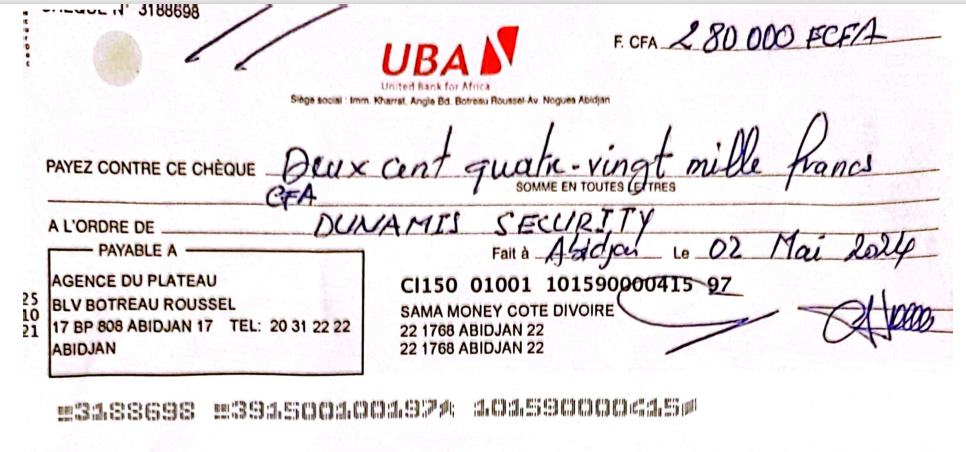 CHEQUE N° 3188698
F. CFA 280 000 FCFA
UBA
United Bank for Africa
Siège social : Imm. Kharrat, Angle Bd. Botreau Roussel-Av. Nogues Abidjan
PAYEZ CONTRE CE CHÈQUE Deux cent quatre-vingt mille francs
SOMME EN TOUTES LETTRES
CFA
A L'ORDRE DE DUNAMIS SECURITY
Fait à Abidjan Le 02 Mai 2024
PAYABLE A
AGENCE DU PLATEAU
BLV BOTREAU ROUSSEL
17 BP 808 ABIDJAN 17 TEL: 20 31 22 22
ABIDJAN
25
10
21
CI150 01001 101590000415 97
SAMA MONEY COTE DIVOIRE
22 1768 ABIDJAN 22
22 1768 ABIDJAN 22
3188698 391500100197 101590000415